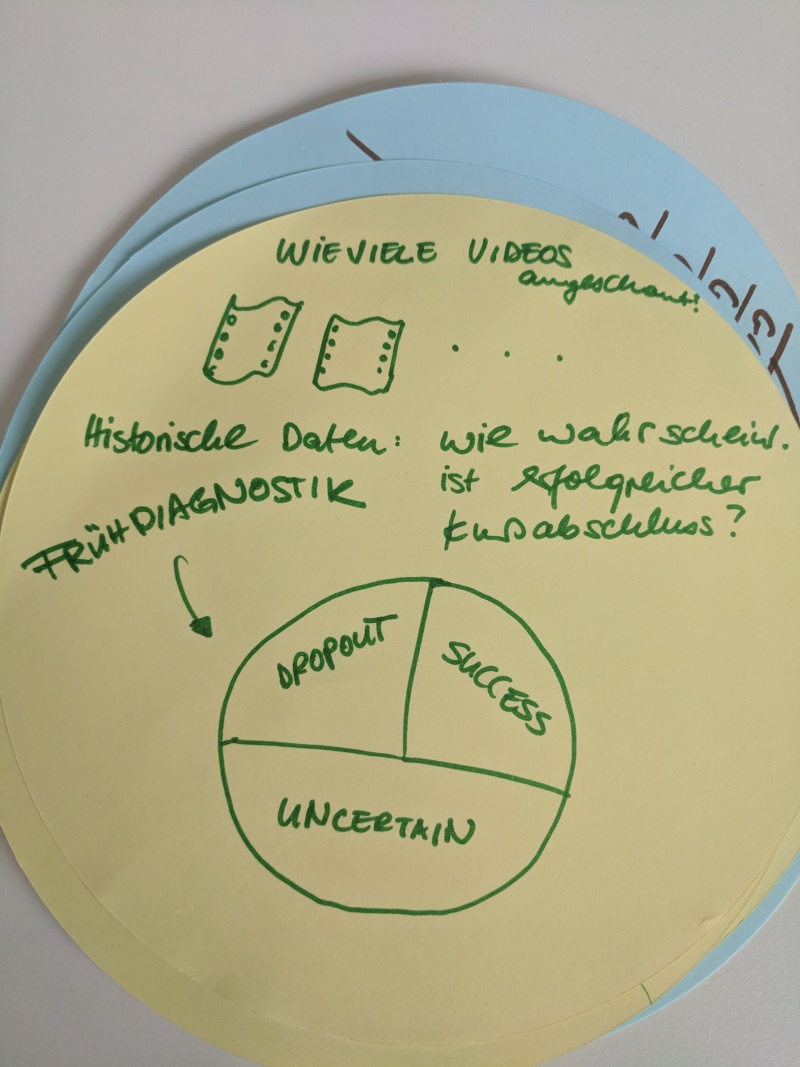 WIEVIELE VIDEOS
angeschaut!
Historische Daten: wie wahrscheinl.
ist erfolgreicher
Kursabschluss?
FRÜHDIAGNOSTIK
DROPOUT
SUCCESS
UNCERTAIN